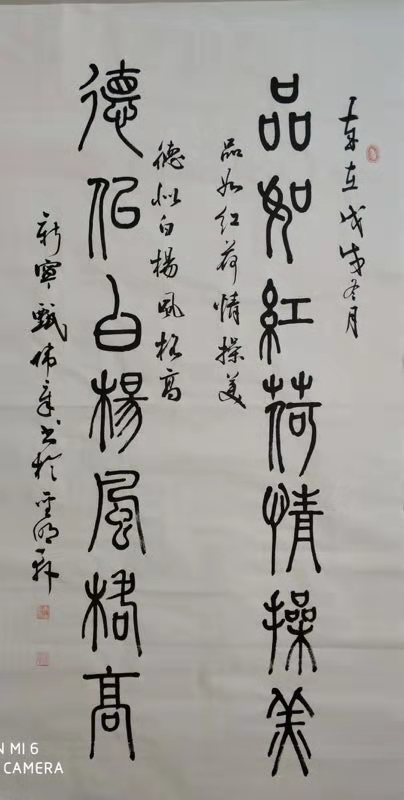 岁在戊戌冬月
品如红荷情操美
品如紅荷情操美
德似白杨风格高
德佀白楊風格高
新宁甄伟章书於
MI 6
CAMERA